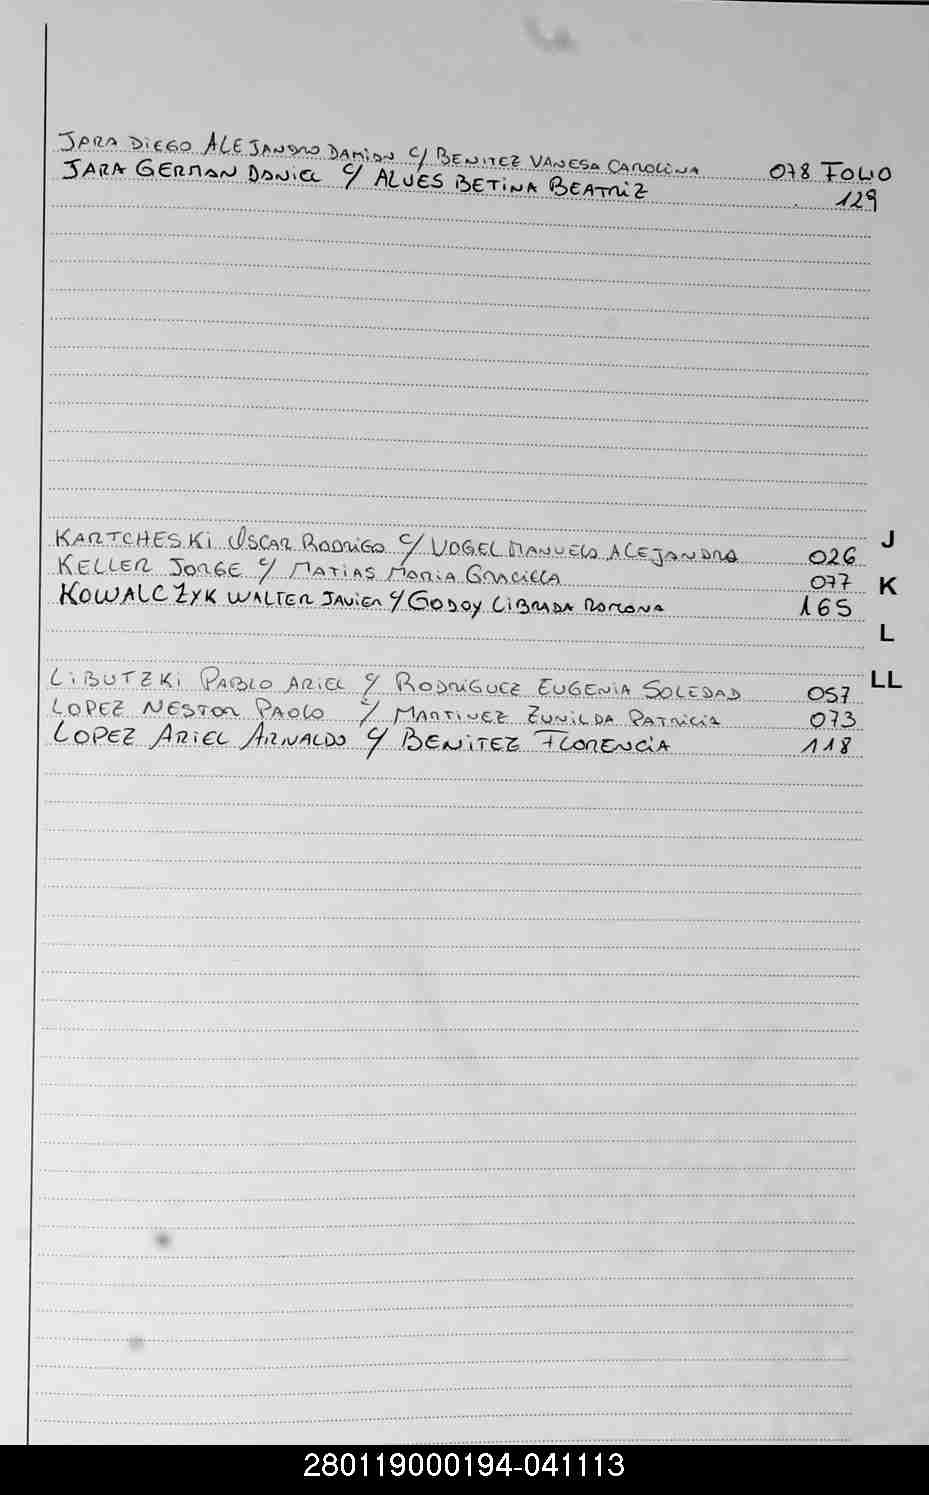 JARA DIEGO ALEJANDRO DAMIAN C/ BENITEZ VANESA CAROLINA 078 FOLIO
JARA GERMAN DANIEL C/ ALVES BETINA BEATRIZ 129
KARTCHESKI OSCAR RODRIGO C/ VOGEL MANUELA ALEJANDRA 026
J
KELLER JORGE C/ MATIAS MARIA GRACIELA 077
K
KOWALCZYK WALTER JAVIER C/ GODOY LIBRADA RAMONA 165
L
LIBUTZKI PABLO ARIEL C/ RODRIGUEZ EUGENIA SOLEDAD 057
LL
LOPEZ NESTOR PAOLO C/ MARTINEZ ZUNILDA PATRICIA 073
LOPEZ ARIEL ARNALDO C/ BENITEZ FLORENCIA 118
280119000194-041113